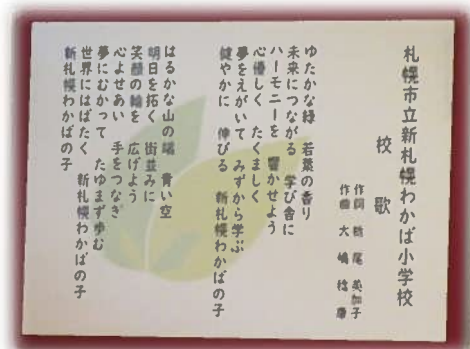 札幌市立新札幌わかば小学校
校歌
作詞 栃尾 英加子
作曲 大嶋 稔
ゆたかな緑 若葉の香り
未来につながる 学び舎に
ハーモニーを 響かせよう
心優しく たくましく
夢をえがいて みずから学ぶ
健やかに 伸びる 新札幌わかばの子
はるかな山の端 青い空
明日を拓く 街並みに
笑顔の輪を 広げよう
心よせあい 手をつなぎ
夢にむかって たゆまず歩む
世界にはばたく 新札幌わかばの子
新札幌わかばの子